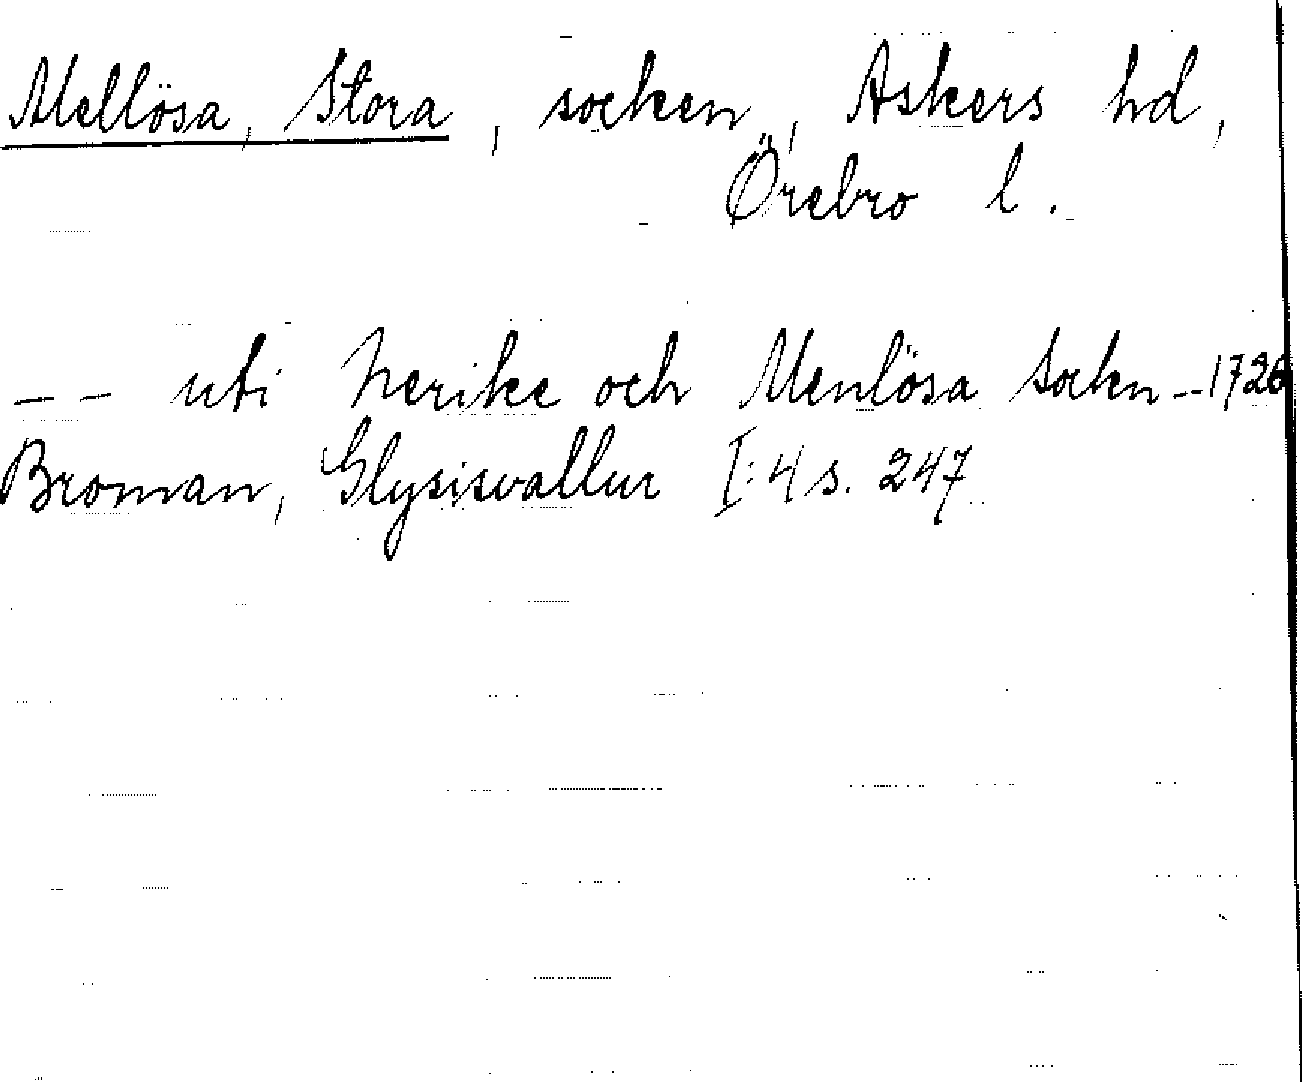 Mellösa, Stora, socken, Askers hd,
Örebro l.
-- uti Nerike och Menlösa Sockn -- 1726
Broman, Glysisvallur I:4 s. 247